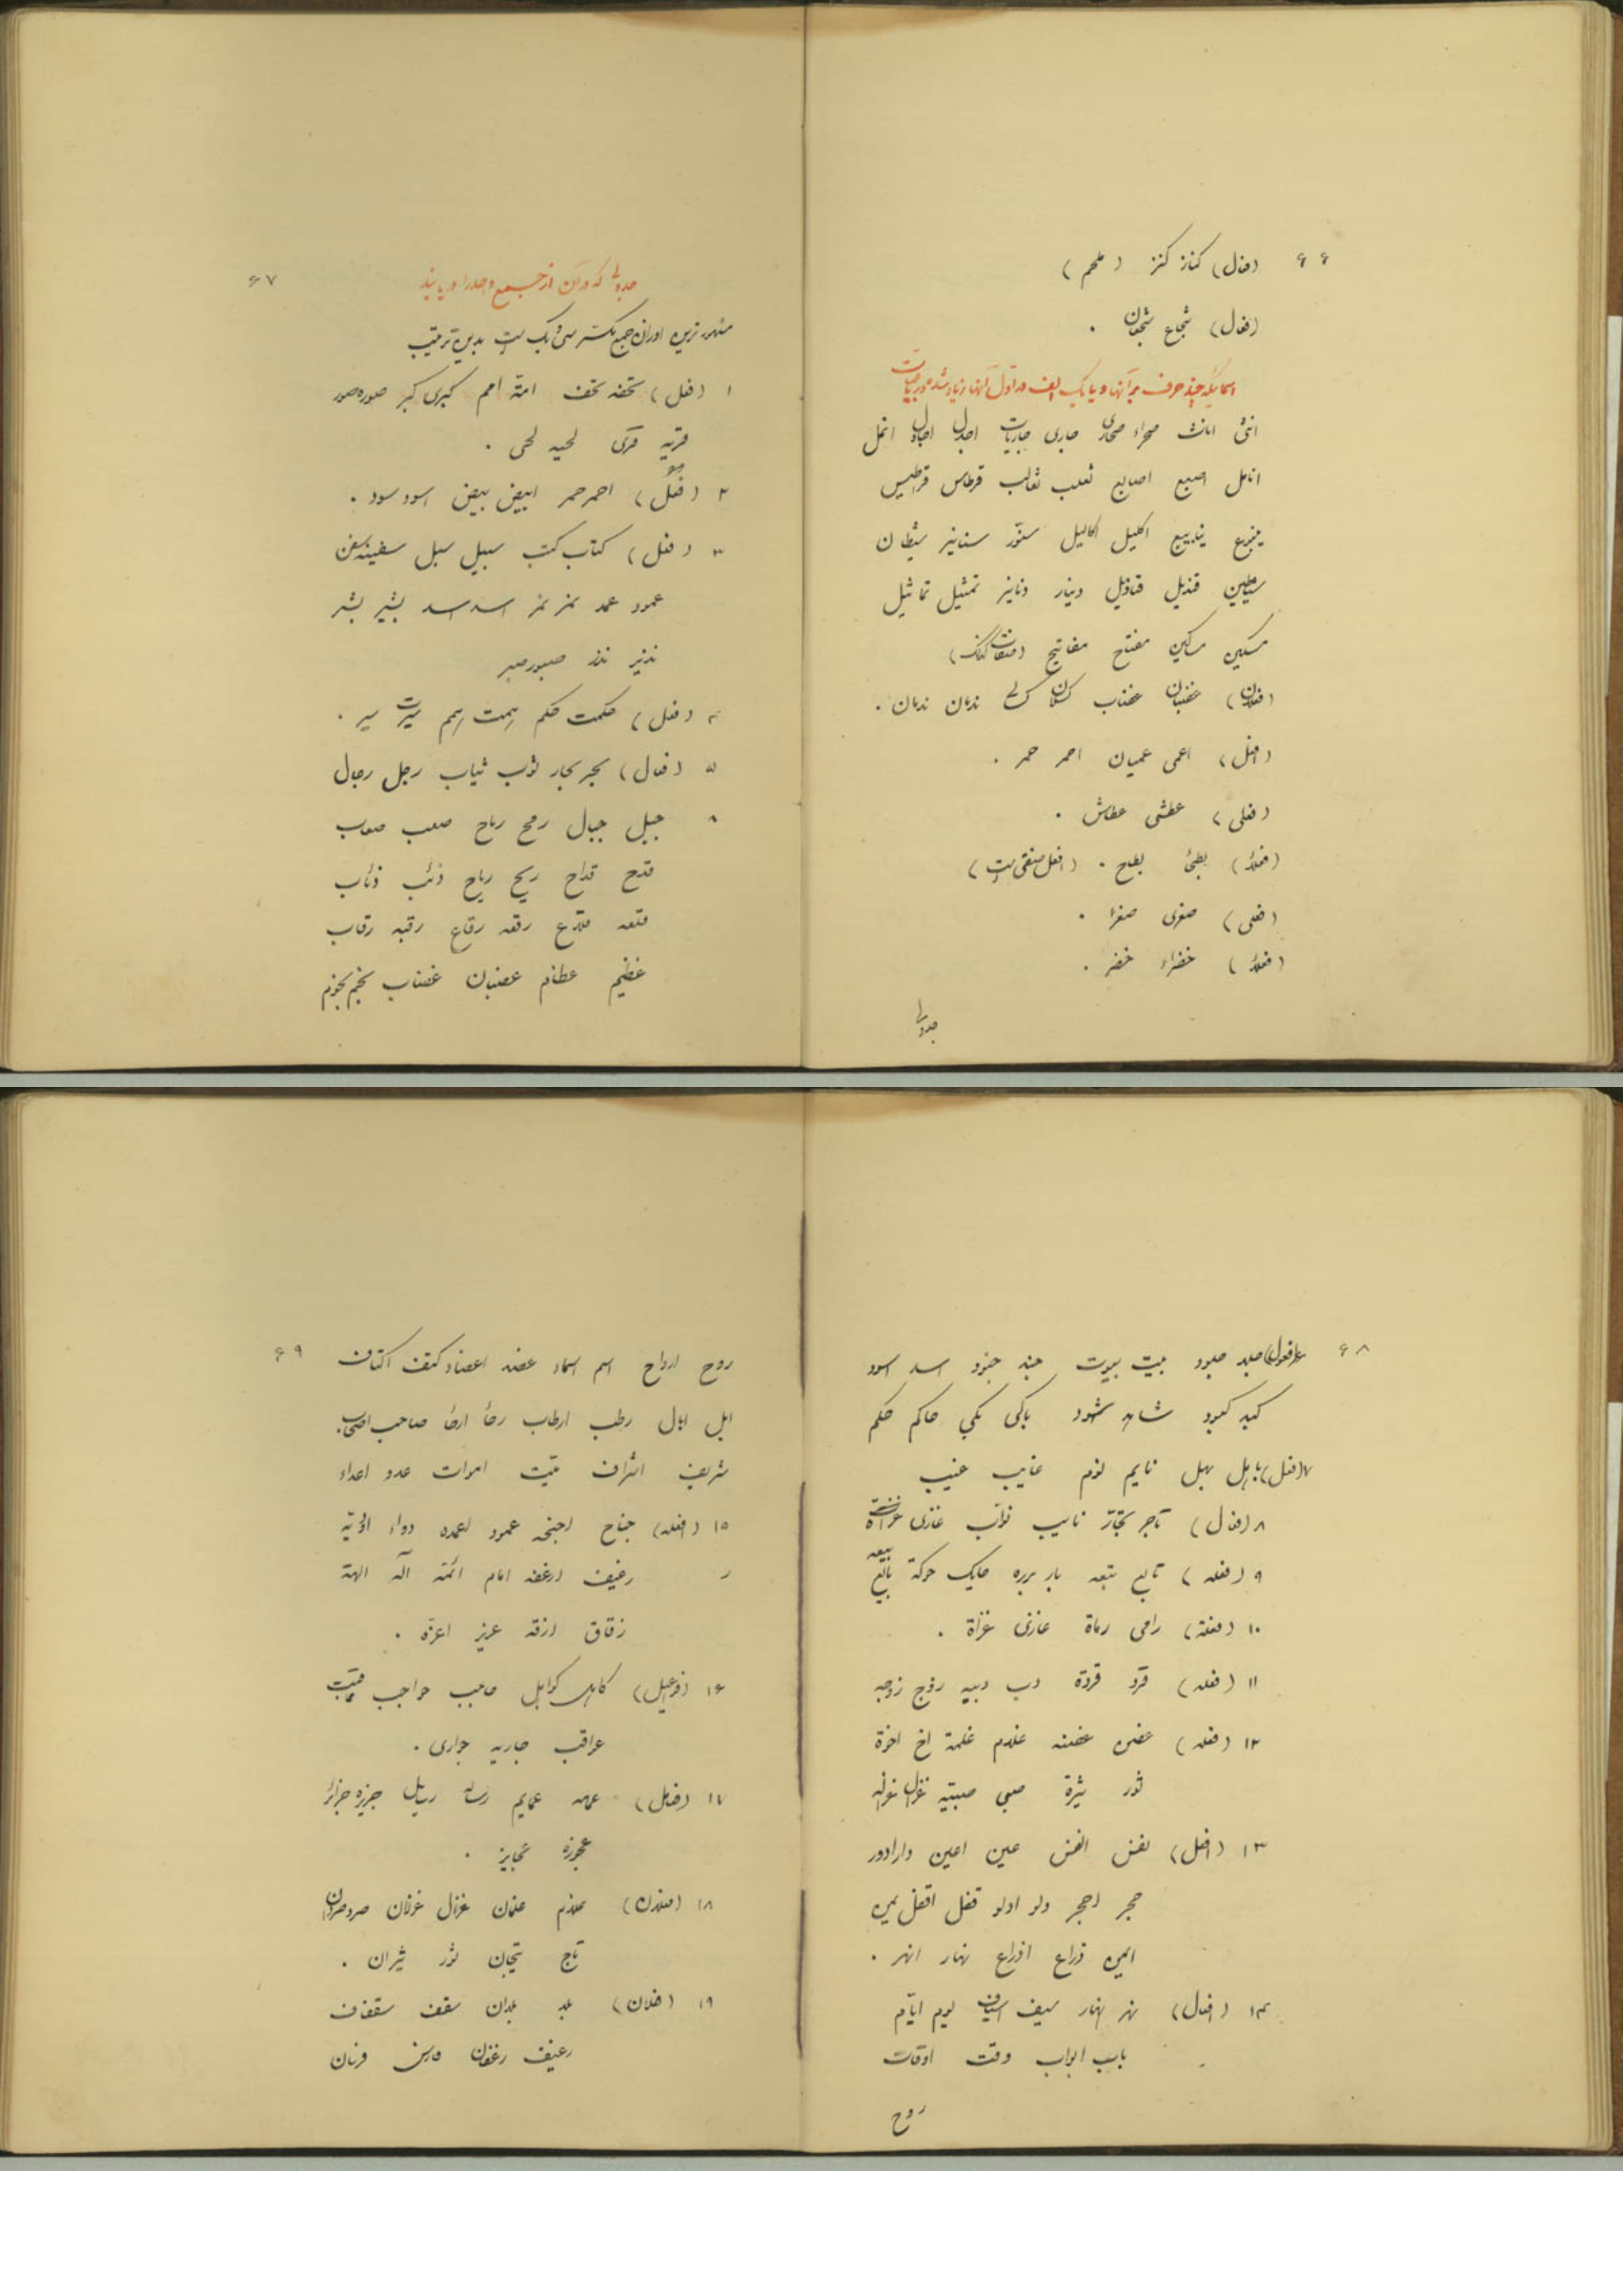 ۶۶
(فعال) کناز کنز (ملحم)
(فعال) شجاع شجعان .
اسمائیکه چند حرف بر آنها و یا یک الف در اول آنها زیاد شده
انثی اناث صحراء صحاری جاری جاریات اجدل اجادل انمل
انامل اصبع اصابع ثعلب ثعالب قرطاس قراطیس
ینبوع ینابیع اکلیل اکالیل سنّور سنانیر شیطان
شیاطین قندیل قنادیل دینار دنانیر تمثیل تماثیل
مسکین مساکین مفتاح مفاتیح
(فعلان) غضبان غضاب کسلان کسالی ندمان ندمان .
(افعل) اعمی عمیان احمر حمر .
(فعلی) عطشی عطاش .
(فعلاء) بطحاء بطاح . (افعل صفتی است)
(فعلی) صغری صغر .
(فعلاء) خضراء خضر .
جدولی
۶۷
جدولی که در آن از جمع واحد را دریابند
مشهورترین اوزان جمع مکسر سی و یک است بدین ترتیب
۱ (فعل) تحفه تحف امة امم کبری کبر صوره صور
قریه قری لحیه لحی .
۲ (فعل) احمر حمر ابیض بیض اسود سود .
۳ (فعل) کتاب کتب سبیل سبل سفینه سفن
عمود عمد نمر نمر اسد اسد بشیر بشر
نذیر نذر صبور صبر
۴ (فعل) حکمت حکم همت همم سیرت سیر .
۵ (فعال) بحر بحار ثوب ثیاب رجل رجال
جبل جبال رمح رماح صعب صعاب
قدح قداح ریح ریاح ذئب ذئاب
قلعه قلاع رقعه رقاع رقبه رقاب
عظیم عظام غضبان غضاب نجم نجوم
۶۸
(فعول) جلد جلود بیت بیوت جند جنود اسد اسود
کبد کبود شاهد شهود باکی بکی حاکم حکم
۷ (فعل) باهل بهل نایم نوم غایب غیب
۸ (فعال) تاجر تجّار نایب نوّاب غازی
۹ (فعله) تابع تبعه بار برره حایک حوکة بایع بیعه
۱۰ (فعلة) رامی رماة غازی غزاة .
۱۱ (فعله) قرد قردة دب دببه زوج زوجه
۱۲ (فعله) غصن غصنه غلام غلمة اخ اخوة
ثور ثیرة صبی صبیته غزال غزاله
۱۳ (افعل) نفس انفس عین اعین دار ادور
حجر احجر دلو ادلو قفل اقفل یمین
ایمن ذراع اذراع نهار انهر .
۱۴ (افعال) نهر انهار سیف اسیاف یوم ایّام
باب ابواب وقت اوقات
روح
۶۹
روح ارواح اسم اسماء عضد اعضاد کتف اکتاف
ابل ابال رطب ارطاب رجا ارجا صاحب اصحاب .
شریف اشراف میّت اموات عدو اعداء
۱۵ (افعله) جناح اجنحه عمود اعمده دواء ادویة
رغیف ارغفه امام ائمة آله الهة
زقاق ازقه عزیز اعزّه .
۱۶ (فواعل) کاهل کواهل حاجب حواجب
عواقب جاریه جواری .
۱۷ (فعایل) عمامه عمایم رساله رسایل جزیره جزائر
عجوزه عجایز .
۱۸ (فعلان) غلام غلمان غزال غزلان صرد صردان
تاج تیجان ثور ثیران .
۱۹ (فعلان) بلد بلدان سقف سقفان
رغیف رغفان فارس فرسان